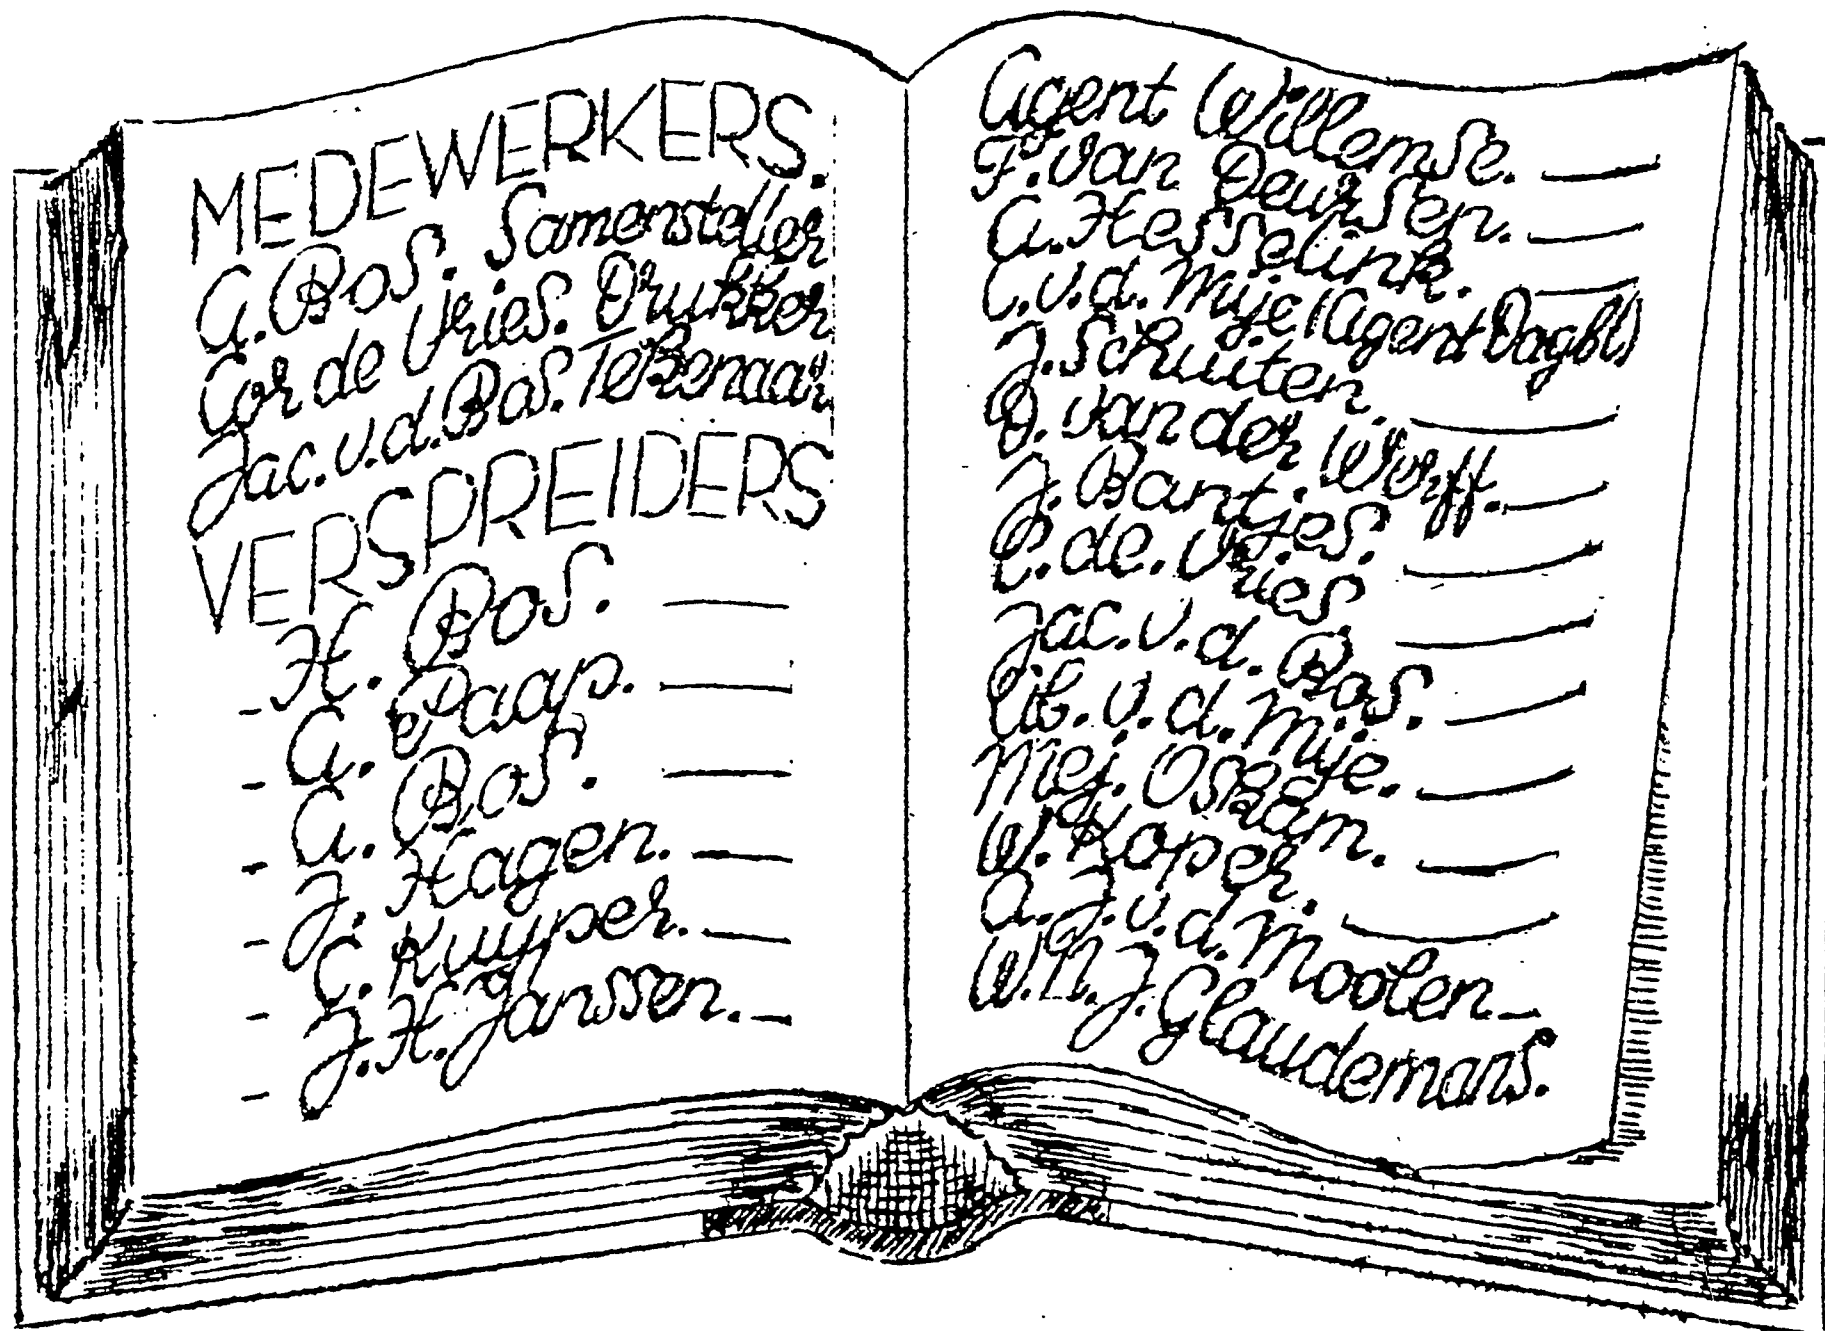 MEDEWERKERS.
G. Bos. Samensteller
Cor de Vries. Drukker
Jac. v.d. Bos. Tekenaar
VERSPREIDERS
- H. Bos. —
- G. Paap. —
- G. Bos. —
- J. Hagen. —
- C. Kuyper. —
- J.H. Janssen. —
Agent Willemse. —
F. van Deursen. —
G. Hesselink. —
C. v.d. Mije (Agent Dagbl)
J. Schuiten. —
D. van der Werff. —
J. Bantjes. —
C. de. Vries —
Jac. v. d. Bos. —
Lib. v. d. Mije. —
Mej. Oskam. —
W. Koper. —
A. J. v. d. Moolen —
W.N. J. Glaudemans.